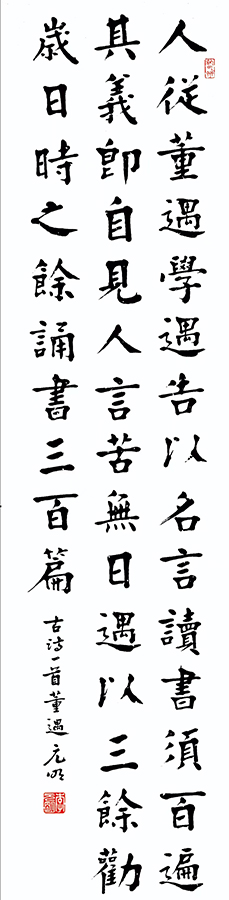 人從董遇學遇告以名言讀書須百遍
其義即自見人言苦無日遇以三餘勸
歲日時之餘誦書三百篇
古詩一首董遇 元明